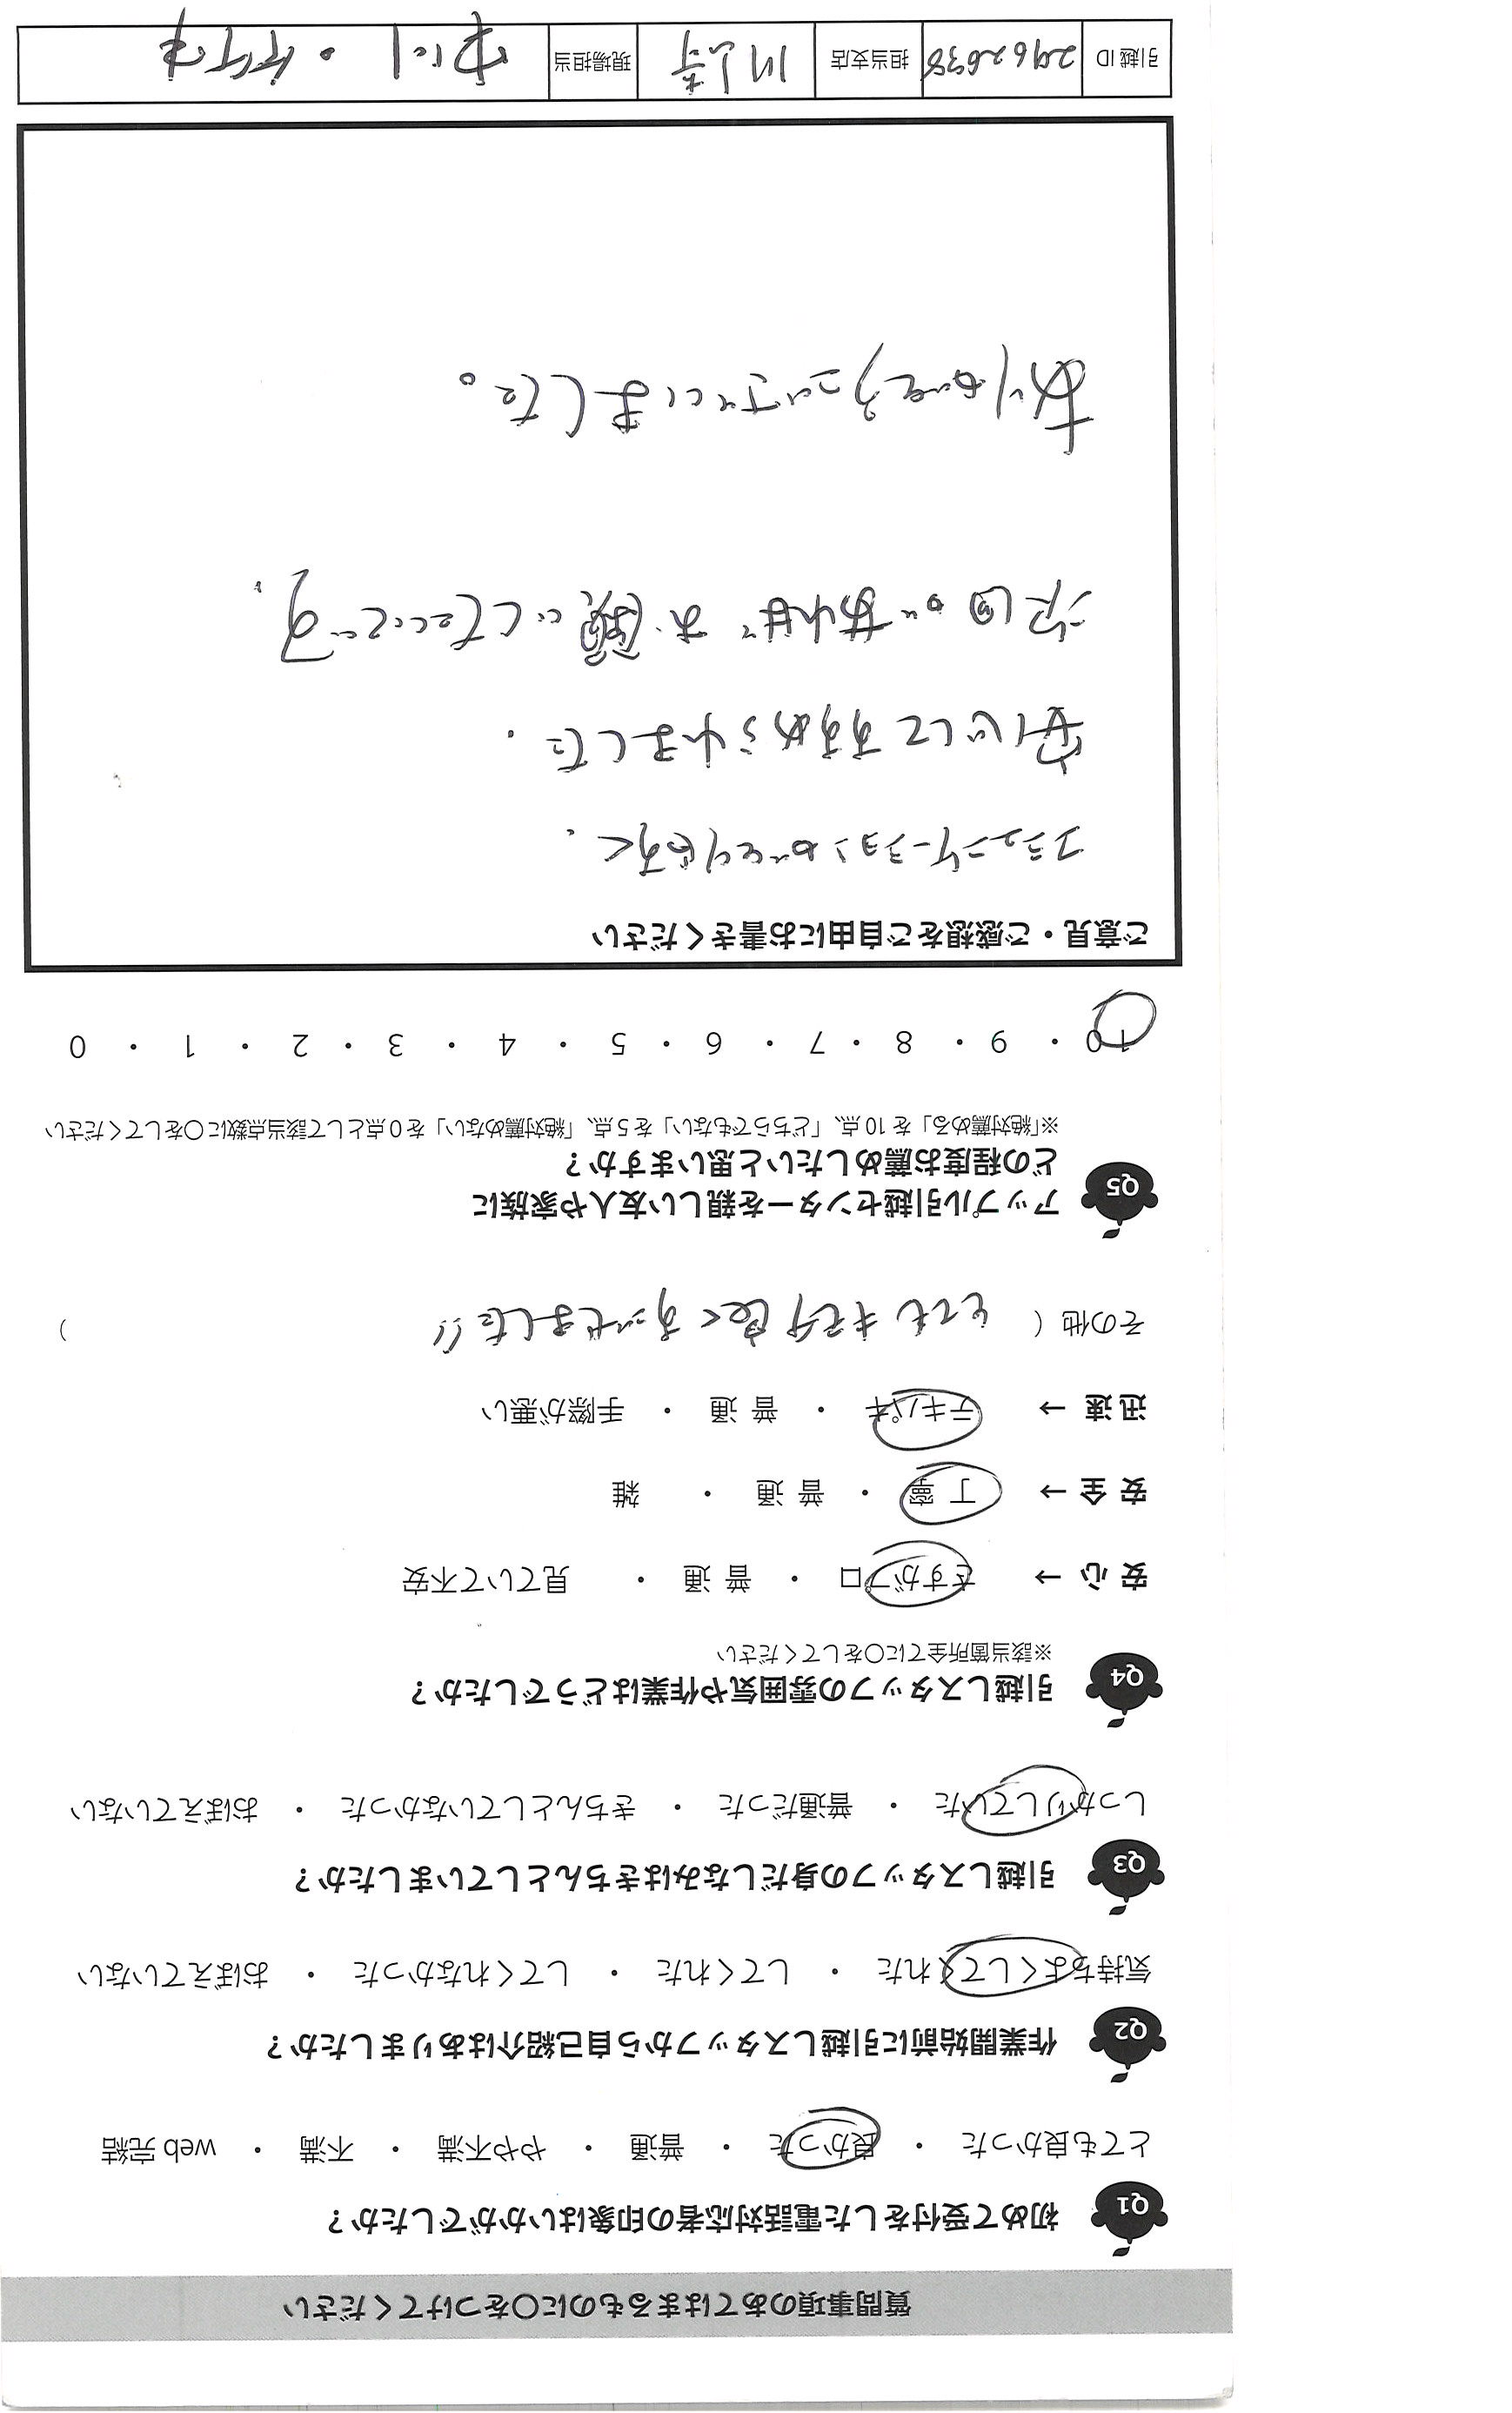 質問事項のあてはまるものに〇をつけてください
Q1 初めて受付をした電話対応者の印象はいかがでしたか？
とても良かった ・ 良かった ・ 普通 ・ やや不満 ・ 不満 ・ web 完結
Q2 作業開始前に引越しスタッフから自己紹介はありましたか？
気持ちよくしてくれた ・ してくれた ・ してくれなかった ・ おぼえていない
Q3 引越しスタッフの身だしなみはきちんとしていましたか？
しっかりしていた ・ 普通だった ・ きちんとしていなかった ・ おぼえていない
Q4 引越しスタッフの雰囲気や作業はどうでしたか？
※該当箇所全てに〇をしてください
安 心 → さすがプロ ・ 普 通 ・ 見ていて不安
安 全 → 丁 寧 ・ 普 通 ・ 雑
迅 速 → テキパキ ・ 普 通 ・ 手際が悪い
その他（ とても キモチ良く すごせました!! ）
Q5 アップル引越センターを親しい友人や家族に
どの程度お薦めしたいと思いますか？
※「絶対薦める」を 10 点、「どちらでもない」を 5 点、「絶対薦めない」を 0 点として該当点数に〇をしてください
10 ・ 9 ・ 8 ・ 7 ・ 6 ・ 5 ・ 4 ・ 3 ・ 2 ・ 1 ・ 0
ご意見・ご感想をご自由にお書きください
コミュニケーションがとりやすく、
安心してすすめられました。
次回があればお願いしたいです。
ありがとうございました。
引越 ID 2962638 担当支店 川崎 現場担当